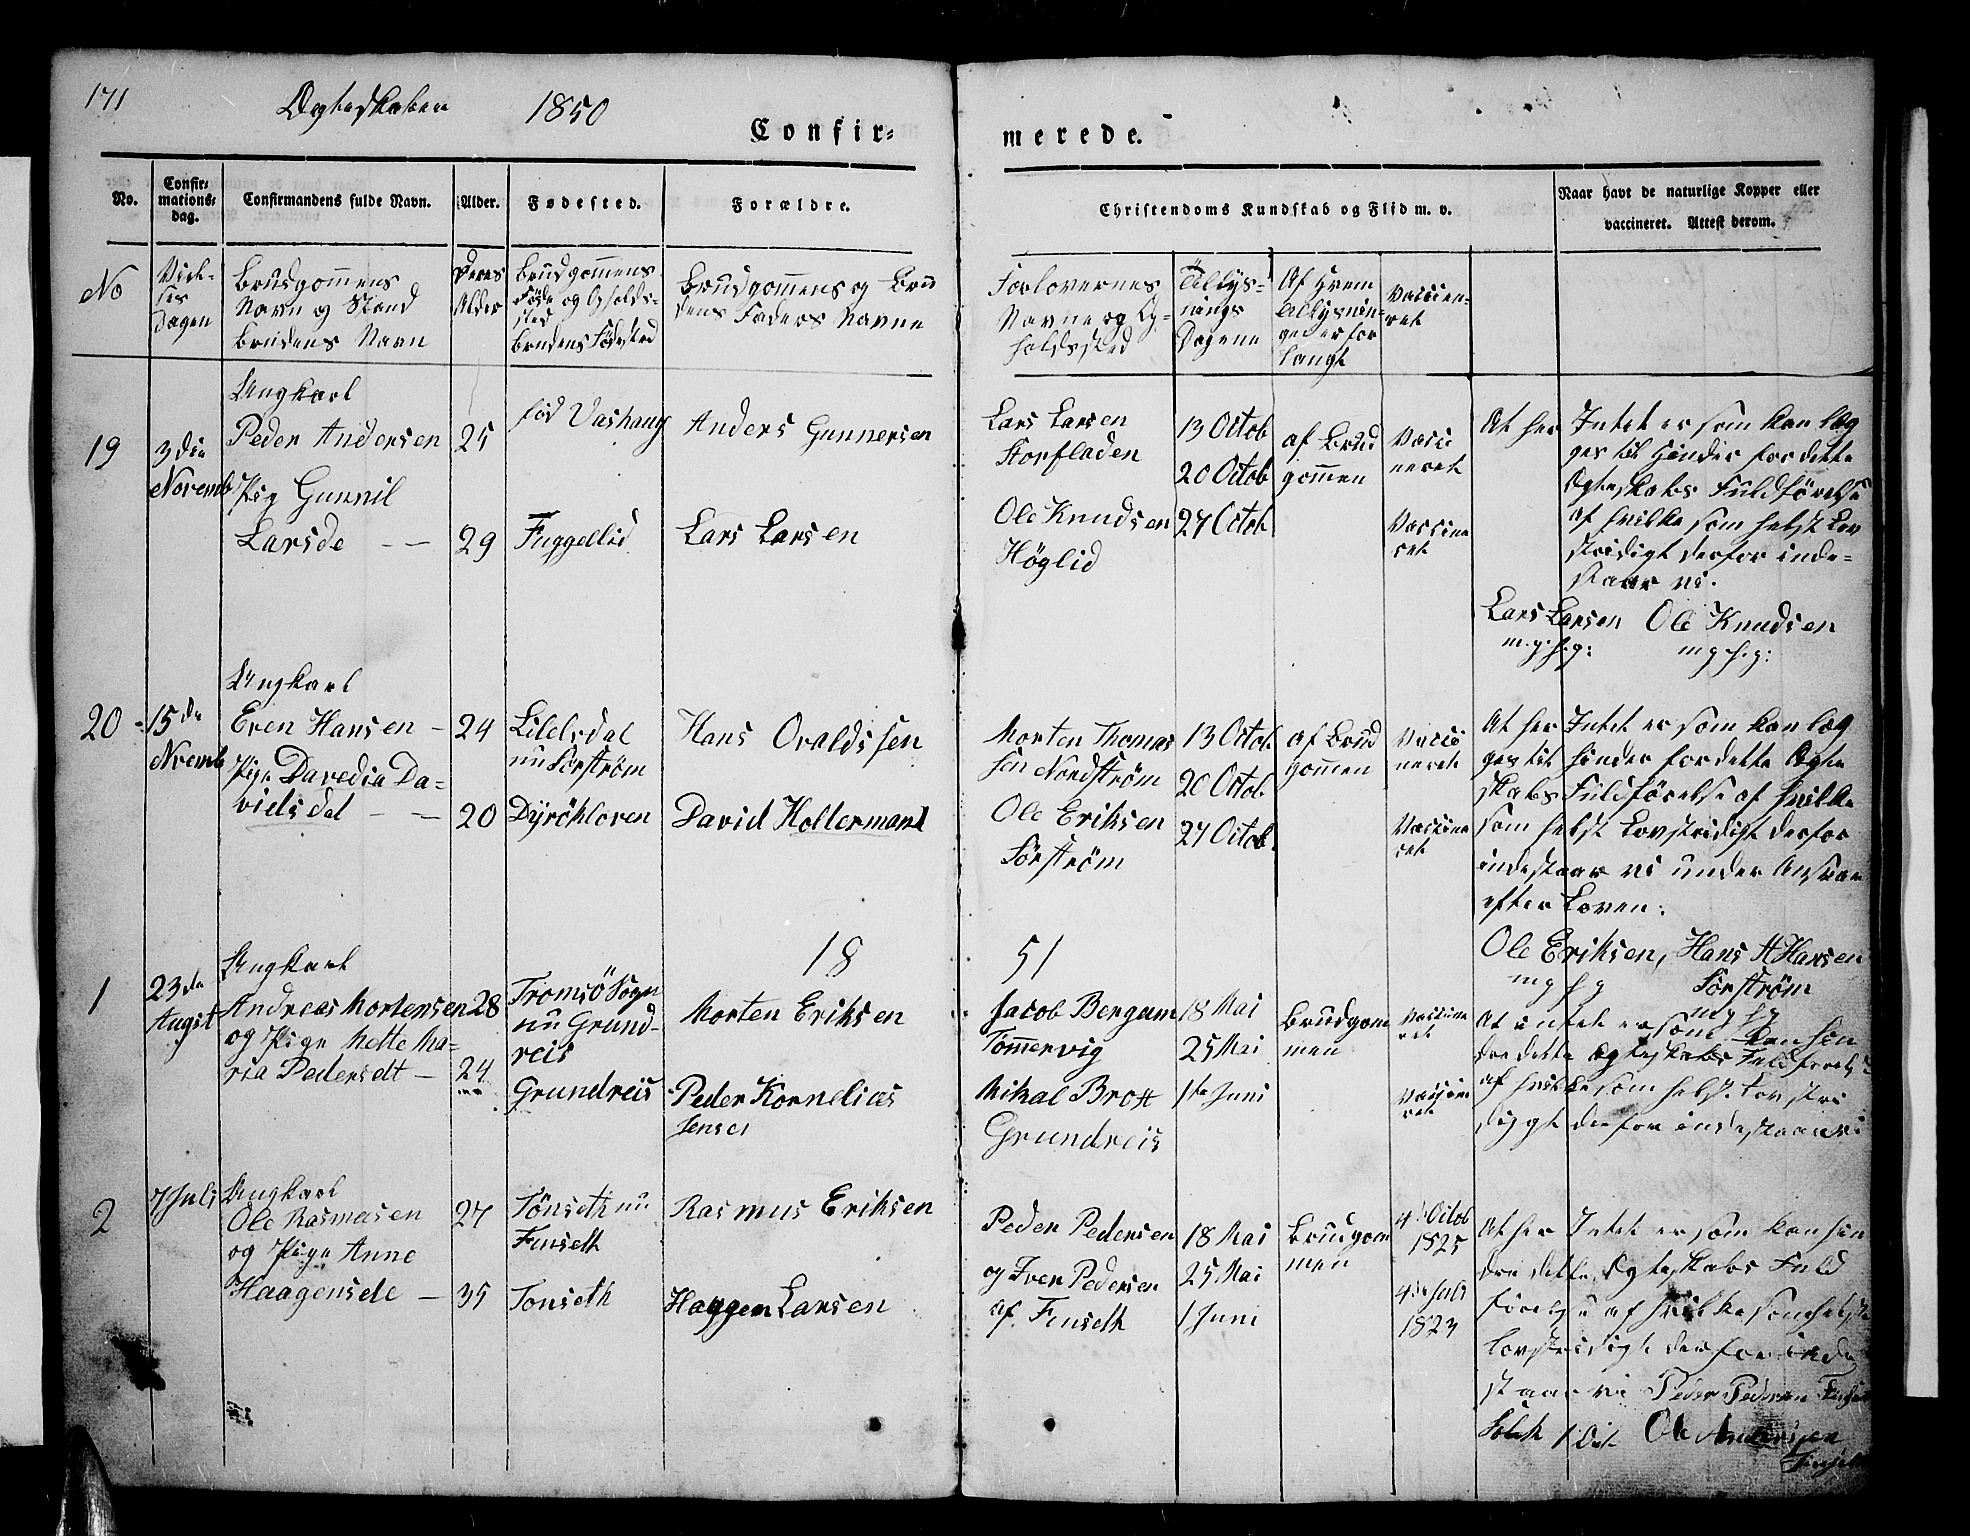 171
Ægteskaber 1850
Confir= merede.
No. Confir=mations=dag. Confirmandens fulde Navn. Alder. Fødested. Forældre. Christendoms Kundskab og Flid m. v. Naar havt de naturlige Kopper eller vaccineret. Attest derom.
No
Viel-
ses
Dagen
Brudgommens
Navn og Stand
Brudens Navn
Deres
Alder
Brudgommens
Føde og Opholds-
sted
Brudens Fødested
Brudgommens og Bru
dens Faders Navne
Forlovernes
Navne og Op-
holdssted
Tillys=
nings
Dagene
Af Hvem
Tillysnin-
gen er for
langt
Vaccine-
ret
19
3die
Novemb
Ungkarl
Peder Andersen 25
Pig Gunnil
Larsde - - 29
fød Vashaug
Fuggellid
Anders Gunnersen
Lars Larsen
Lars Larsen
Storfladen
Ole Knudsen
Höglid
13 Octob
20 Octob
27 Octob
af Brud
gommen
Vacci
neret
Vaccine
ret
At her Intet er som kan læg
ges til Hinder for dette
Ægteskabs Fuldförelse
af hvilke som helst Lov
stridigt derfor inde=
staar vi.
Lars Larsen Ole Knudsen
m.p.f.g: m p f.g:
20
15de
Novemb
Ungkarl
Even Hansen - 24
Pige Davedia Da-
vidsdel - - 20
Lilelsdal
nu Sörström
Dyrökloven
Hans Ovaldssen
David Holtermand
Morten Thomas
sen Nordström
Ole Eriksen
Sörström
13 Octob
20 Octob
27 Octob
af Brud
gommen
Vacci
neret
Vaccine
ret
At her Intet er som kan læg
ges til hinder for dette Ægte
skabs Fuldförelse af hvilke
som helst Lovstridigt derfor
indestaar vi under Ansvar
efter Loven.
Ole Eriksen, Hans H Hansen
m p f g Sörström
m p f g
18 51
1
23de
Augst
Ungkarl
Andreas Mortensen 28
og Pige Mette Ma-
ria Pedersdt - 24
Tromsö Sogn
nu Grund-
reis
Grundreis
Morten Eriksen
Peder Kornelias
Jenses
Jacob Bergum
Tommervig
Mikal Brox
Grundreis
18 Mai
25 Mai
1ste Juni
Brudgom
men
Vaccine
ret
Vaccine
ret
At intet er som kan hin
dre dette Ægteskabs Fuldförelse
af hvilke som helst Lovstri
digt derfor indestaar vi
2
7 Juli
Ungkarl
Ole Rasmusen 27
og Pige Anne
Haagensde - 35
Tönseth nu
Finseth
Tonseth
Rasmus Eriksen
Haggen Larsen
Peder Pedersen
og Iver Pedersen
af. Finseth
18 Mai
25 Mai
1 Juni
Brudgom
men
4 Octob
1825
4 Juli
1823
At her Intet er som kan hin
dre dette Ægteskabs Fuld
förelse af hvilke som helst
lovstridigt derfor inde
staar vi Peder Pedersen
Ole Andersen